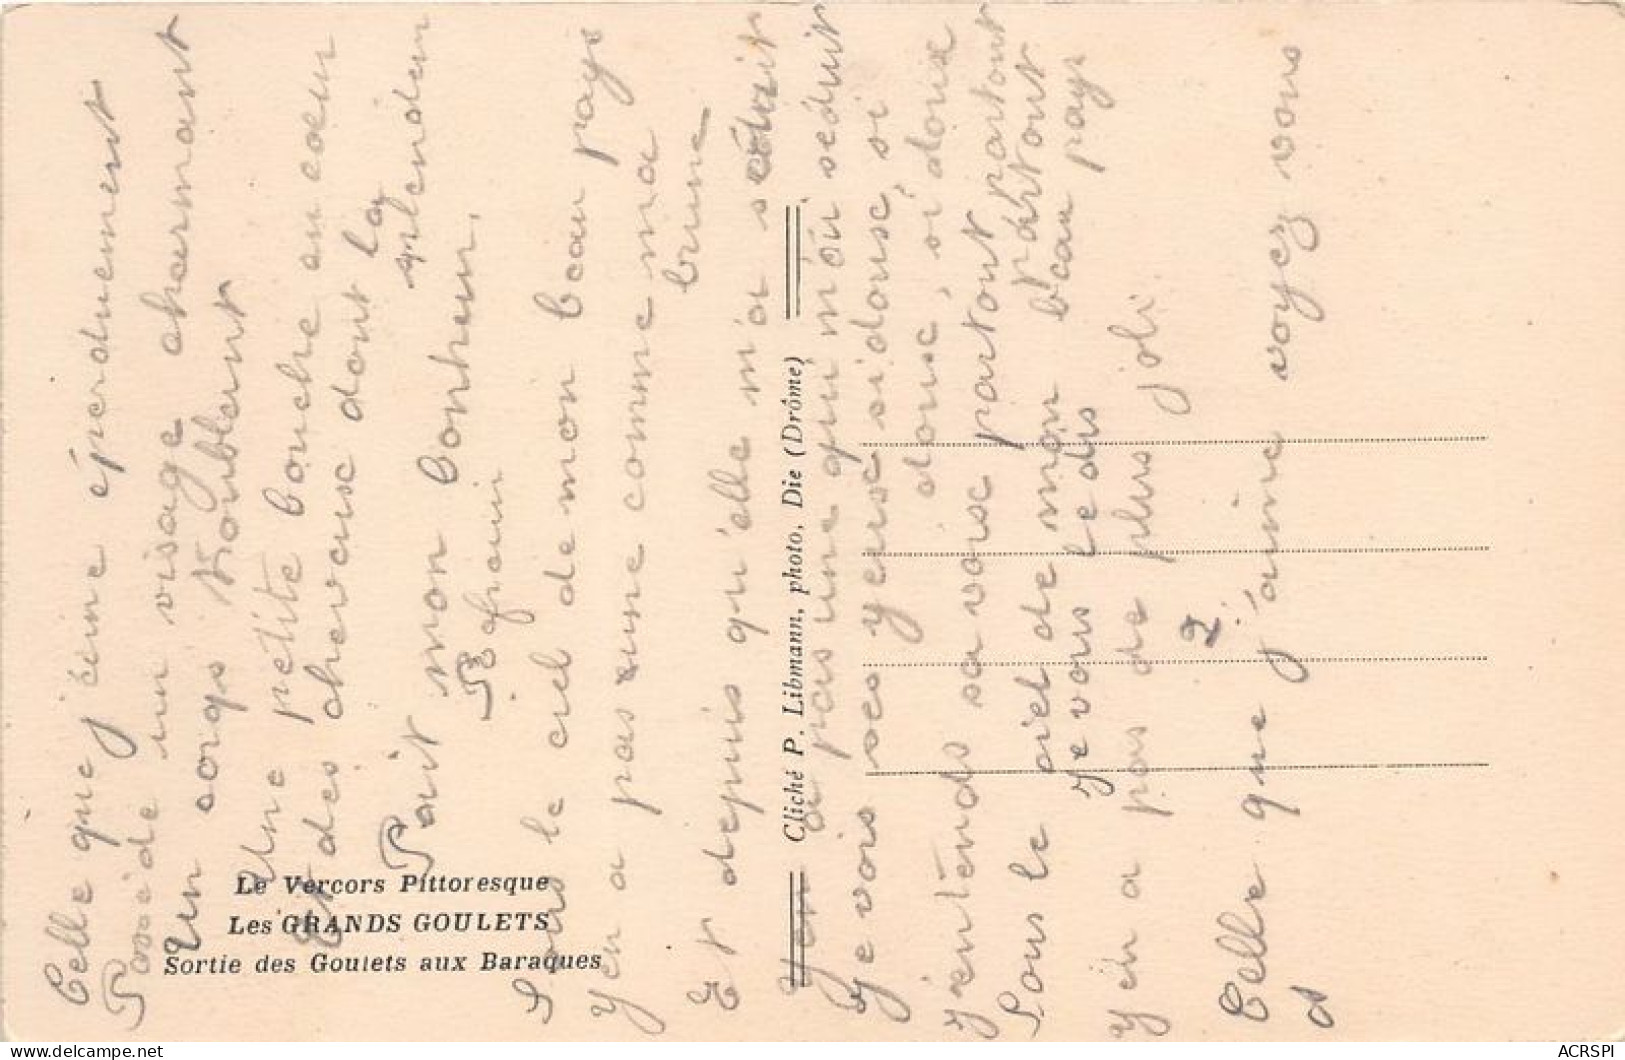 Celle que j'éime éperduement
Posséde un visage charmant
Un corps troublant
Une petite bouche en cœur
Et des cheveux dont la
splendeur
Fait mon bonheur.
Refrain
Sous le ciel de mon beau pays
Y en a pas une comme ma
brune
Et depuis qu'elle m'a séduit
Y en a pas une qui m'où séduit
Je vois ses yeux si doux, si
doux, si doux
J'entends sa voix partout partout
partout
Sous le ciel de mon beau pays
Je vous le dis
Y en a pas de plus joli
2
Celle que j'aime voyez vous
Le Vercors Pittoresque
Les GRANDS GOULETS
Sortie des Goulets aux Baraques
Cliché P. Libmann, photo, Die (Drôme)
https://www.delcampe.net
ACRSPI